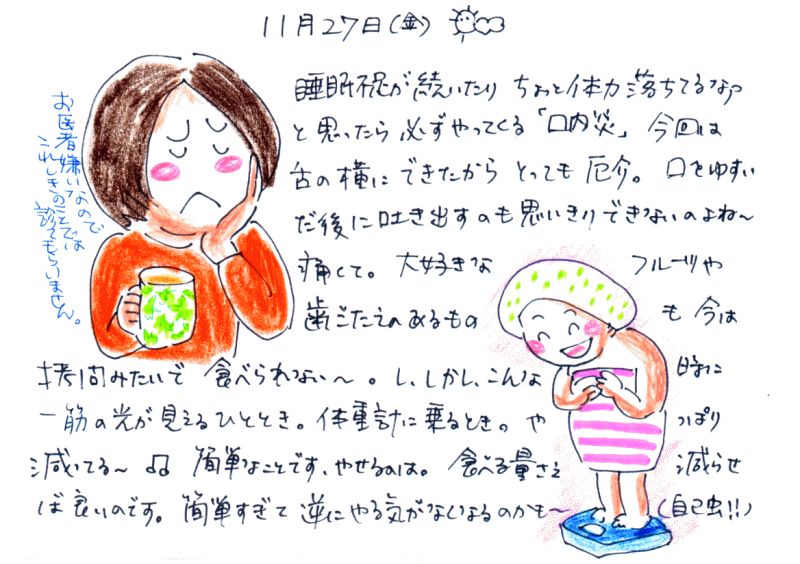 11月27日(金)
睡眠不足が続いたり ちょっと体力落ちてるなっ
と思ったら 必ずやってくる「口内炎」 今回は
舌の横にできたから とっても 厄介。 口をゆすい
だ後に吐き出すのも思いきりできないのよね~
痛くて。 大好きな フルーツや
歯ごたえのあるもの も 今は
拷問みたいで 食べられない~。し、しかし、こんな 時に
一筋の光が見えるひととき。体重計に乗るとき。や っぱり
減ってる~ ♫ 簡単なことです、やせるのは。 食べる量さえ 減らせ
ば良いのです。簡単すぎて 逆にやる気がなくなるのかも~ (自己虫!!)
お医者嫌いなので
これしきのことでは
診てもらいません。